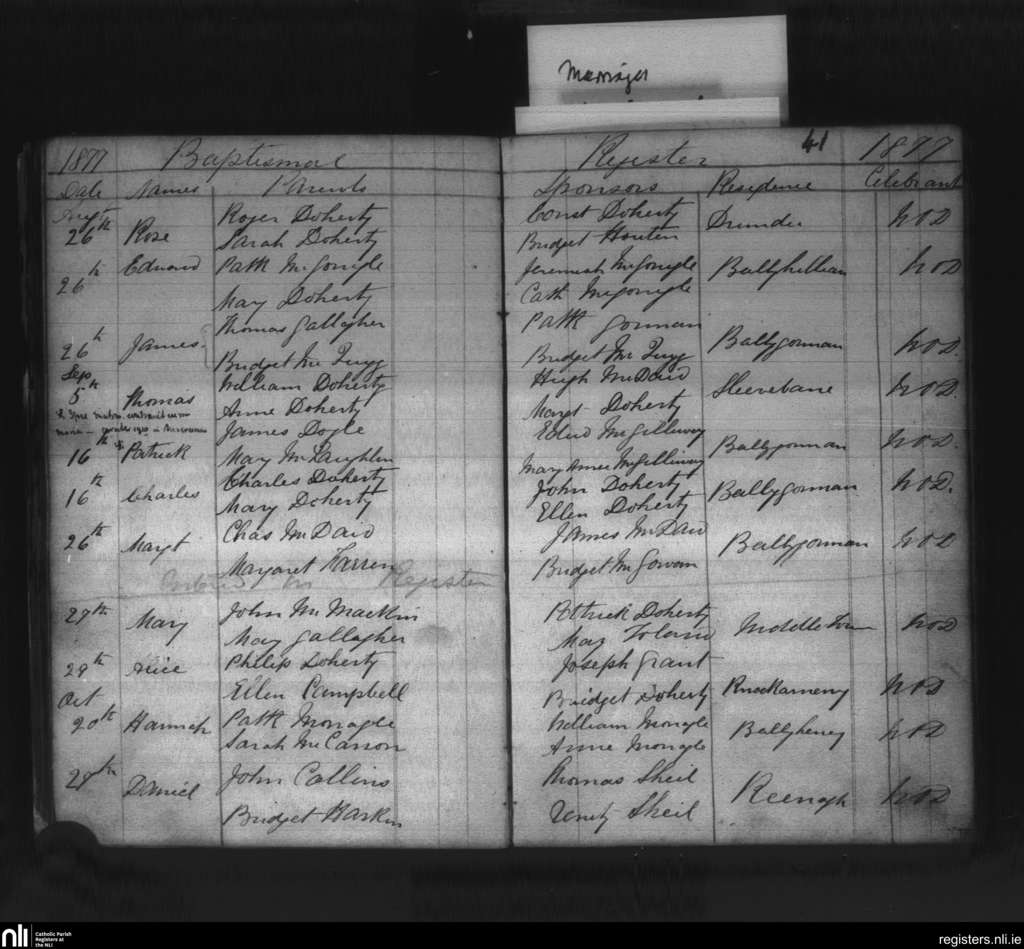 Marriages
1877 Baptismal Register 41 1877
Date Names Parents Sponsors Residence Celebrant
Augt
26th Rose Roger Doherty Const Doherty Drumdu NOD
Sarah Doherty Bridget Houten
26th Edward Patk McGonigle Jeremiah McGonigle Ballyhillian NOD
May Doherty Cath McGonigle
26th James Thomas Gallagher Patk Gorman Ballygorman NOD.
Bridget McFuyg Bridget McFuyg
Sep
5th Thomas William Doherty Hugh McDaid Sleevebane NOD.
Anne Doherty Margt Doherty
16th Patrick James Doyle Edwd McGilloway Ballygorman NOD.
Mary McLaughlin Mary Anne McGilloway
16th Charles Charles Doherty John Doherty Ballygorman NOD.
Mary Doherty Ellen Doherty
26th Margt Chas McDaid James McDaid Ballygorman NOD
Margaret Farren Bridget McGowan
Register
27th Mary John McMackin Patrick Doherty Middletown NOD
May Gallagher May Toland
29th Alice Philip Doherty Joseph Grant Knockameny NOD
Ellen Campbell Bridget Doherty
Oct
20th Hannah Patk Monagle William Mongle Ballyheney NOD
Sarah McCarron Anne Mongle
28th Daniel John Collins Thomas Sheil Keenagh NOD
Bridget Harkin Unity Sheil
nli Catholic Parish
Registers at
the NLI
registers.nli.ie